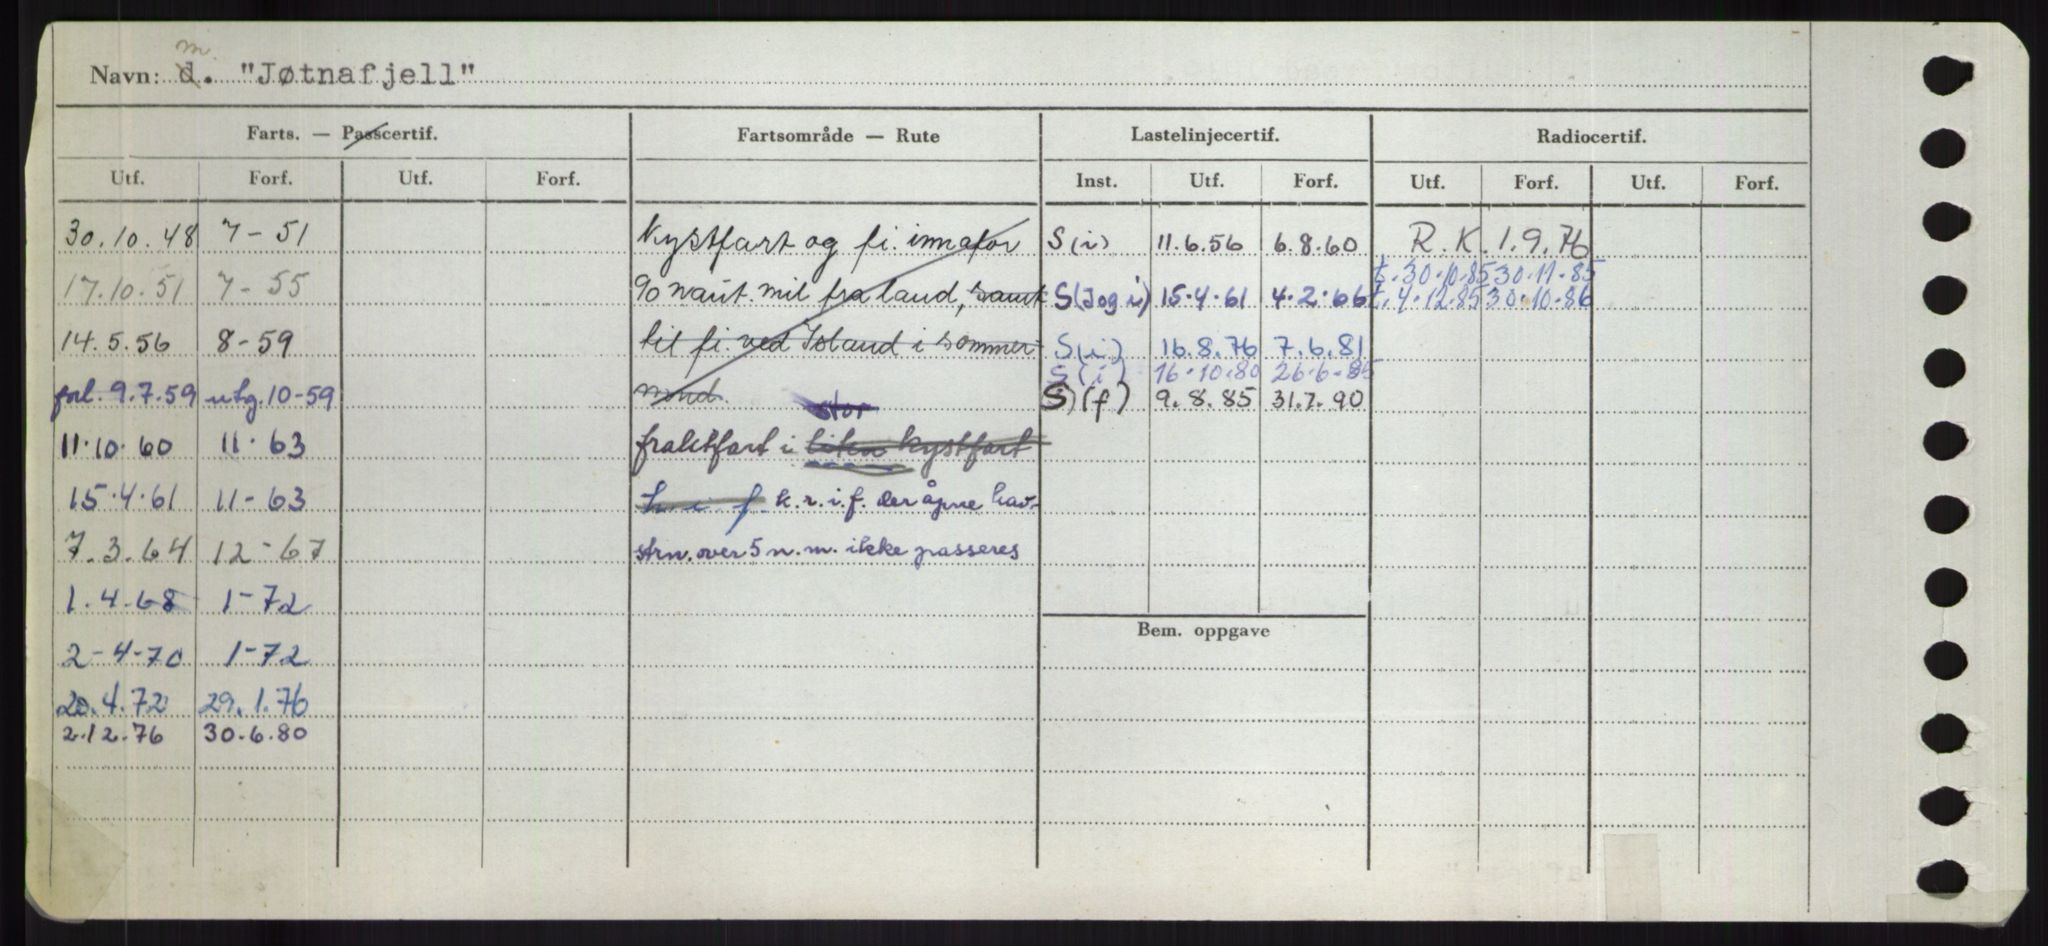 m
Navn: d. "Jøtnafjell"
Farts. — Passcertif. Fartsområde — Rute Lastelinjecertif. Radiocertif.
Utf. Forf. Utf. Forf. Inst. Utf. Forf. Utf. Forf. Utf. Forf.
30.10.48 7-51 kystfart og fi. innafor S(i) 11.6.56 6.8.60 R.K. 1.9.76
t. 30.10.85 30.11.85
17.10.51 7-55 90 naut. mil fra land, samt S(J og i) 15.4.61 4.2.66 t. 4.12.85 30.10.86
14.5.56 8-59 til fi. ved Island i sommer- S(i) 16.8.76 7.6.81
S(i) 16.10.80 26.6.85
forl. 9.7.59 utg. 10-59 mnd. S(f) 9.8.85 31.7.90
stor
11.10.60 11.63 fraktfart i liten kystfart
15.4.61 11-63 k. i f. k.r.i.f. der åpne hav-
7.3.64 12-67 strn. over 5 n.m. ikke passeres
1.4.68 1-72
Bem. oppgave
2-4-70 1-72
20.4.72 29.1.76
2.12.76 30.6.80